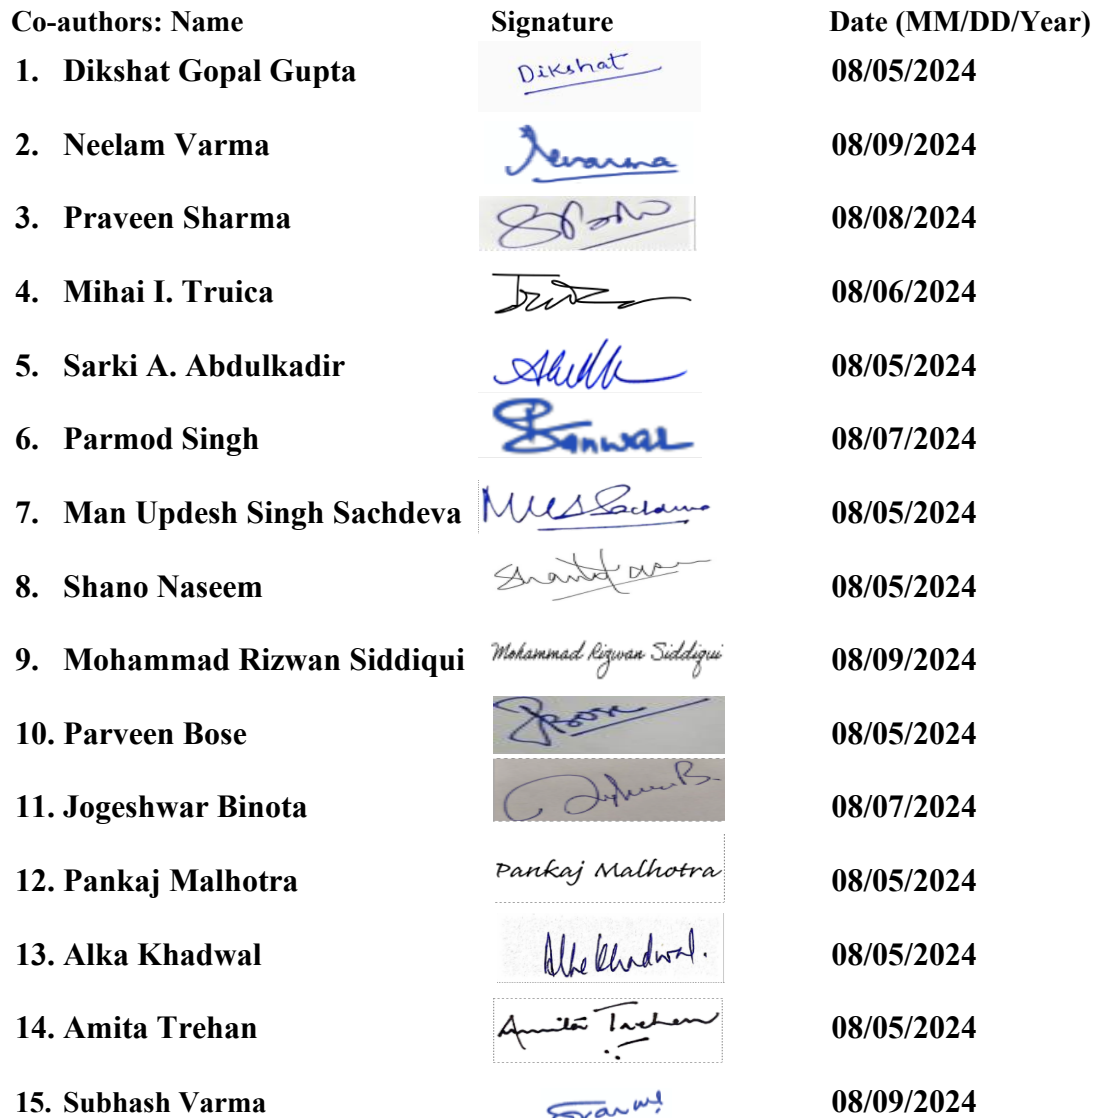 Co-authors: Name Signature Date (MM/DD/Year)
1. Dikshat Gopal Gupta Dikshat 08/05/2024
2. Neelam Varma 08/09/2024
3. Praveen Sharma 08/08/2024
4. Mihai I. Truica 08/06/2024
5. Sarki A. Abdulkadir 08/05/2024
6. Parmod Singh 08/07/2024
7. Man Updesh Singh Sachdeva 08/05/2024
8. Shano Naseem 08/05/2024
9. Mohammad Rizwan Siddiqui Mohammad Rizwan Siddiqui 08/09/2024
10. Parveen Bose 08/05/2024
11. Jogeshwar Binota 08/07/2024
12. Pankaj Malhotra Pankaj Malhotra 08/05/2024
13. Alka Khadwal Alka Khadwal. 08/05/2024
14. Amita Trehan Amita Trehan 08/05/2024
15. Subhash Varma 08/09/2024